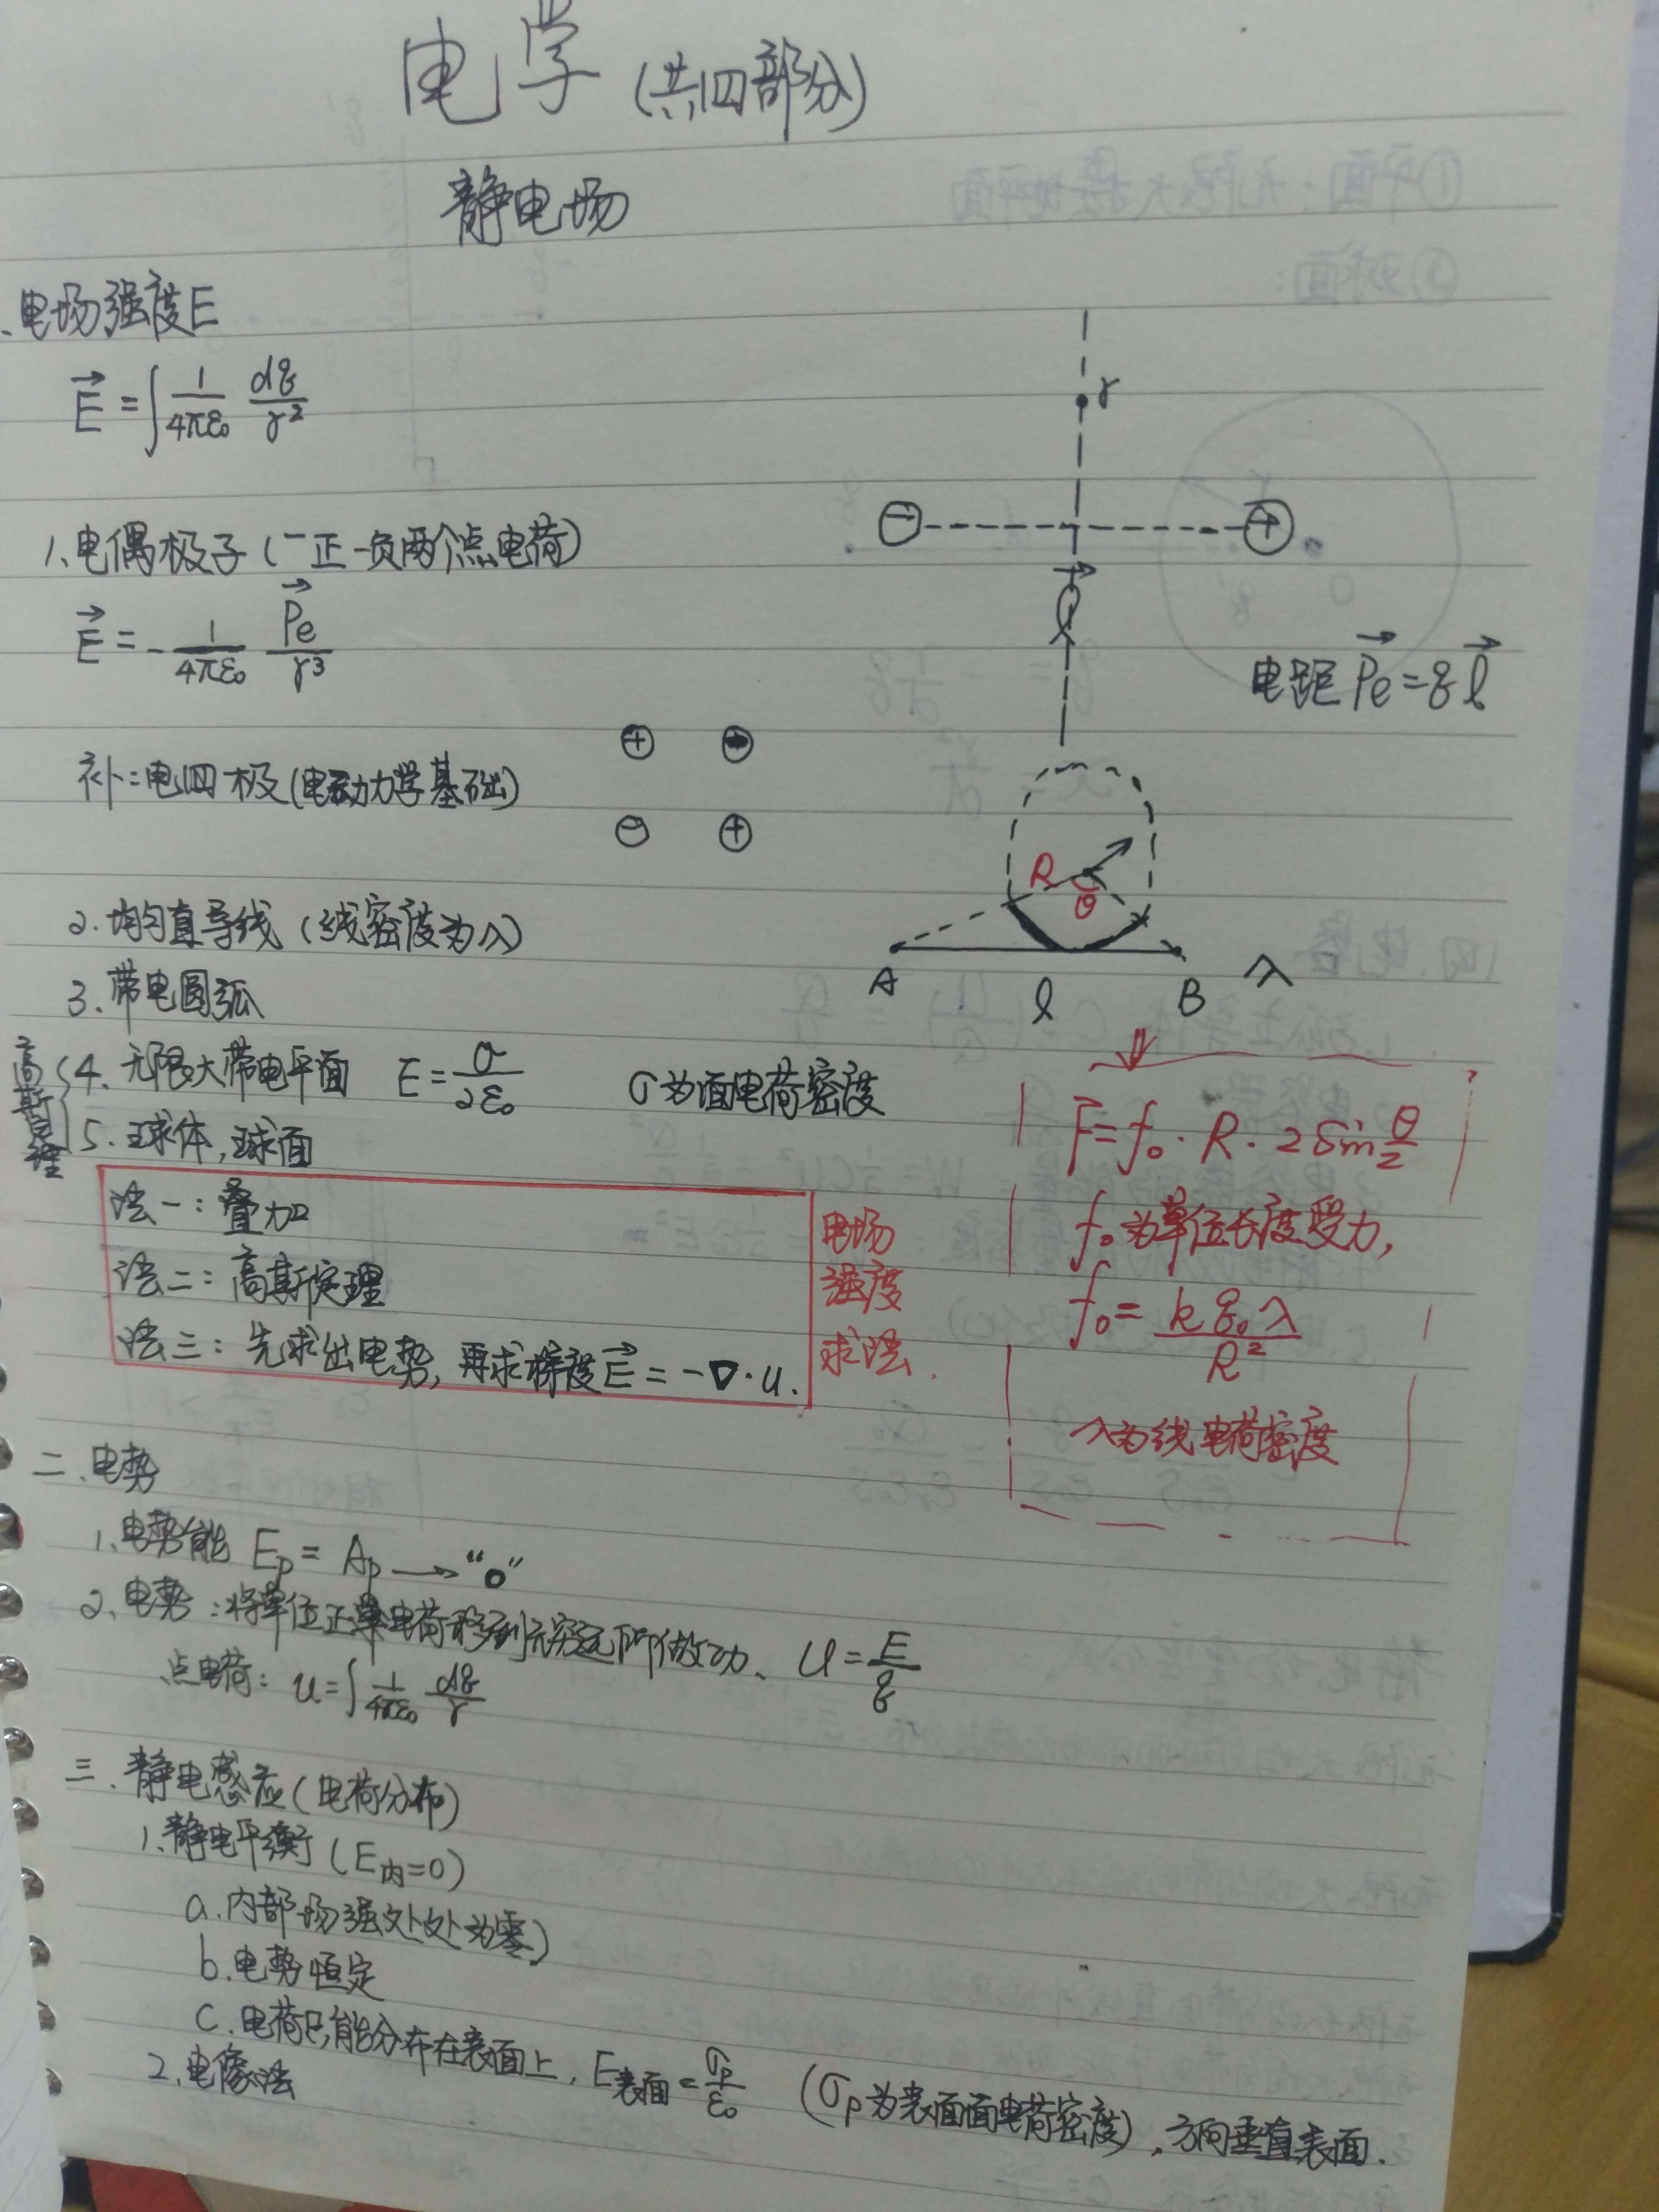 电学（共四部分）
静电场
、电场强度E
E⃗ = ∫ 1/4πε₀ dq/r²
r
⊖ ⊕
1、电偶极子（一正一负两个点电荷）
l⃗
E⃗ = - 1/4πε₀ P⃗e/r³
电距 P⃗e = q l⃗
补：电四极（电动力学基础）
⊕
⊖ ⊕
2. 均匀直导线（线密度为λ）
R
θ
A l B λ
3. 带电圆弧
高斯定理
4. 无限大带电平面 E = σ/2ε₀ σ为面电荷密度
5. 球体，球面
法一：叠加
法二：高斯定理
法三：先求出电势，再求梯度 E⃗ = -∇·u.
电场
强度
求法.
F⃗ = f₀·R·2sin θ/2
f₀为单位长度受力,
f₀ = k q₀ λ/R²
λ为线电荷密度
二、电势
1、电势能 Eₚ = Aₚ→“0”
2、电势：将单位正电荷移到无穷远所做功、 U = E/q
点电荷：u = ∫ 1/4πε₀ dq/r
三、静电感应（电荷分布）
1、静电平衡（E内=0）
a. 内部场强处处为零）
b. 电势恒定
c. 电荷只能分布在表面上，E表面 = σₚ/ε₀ （σₚ为表面面电荷密度），方向垂直表面.
2、电像法